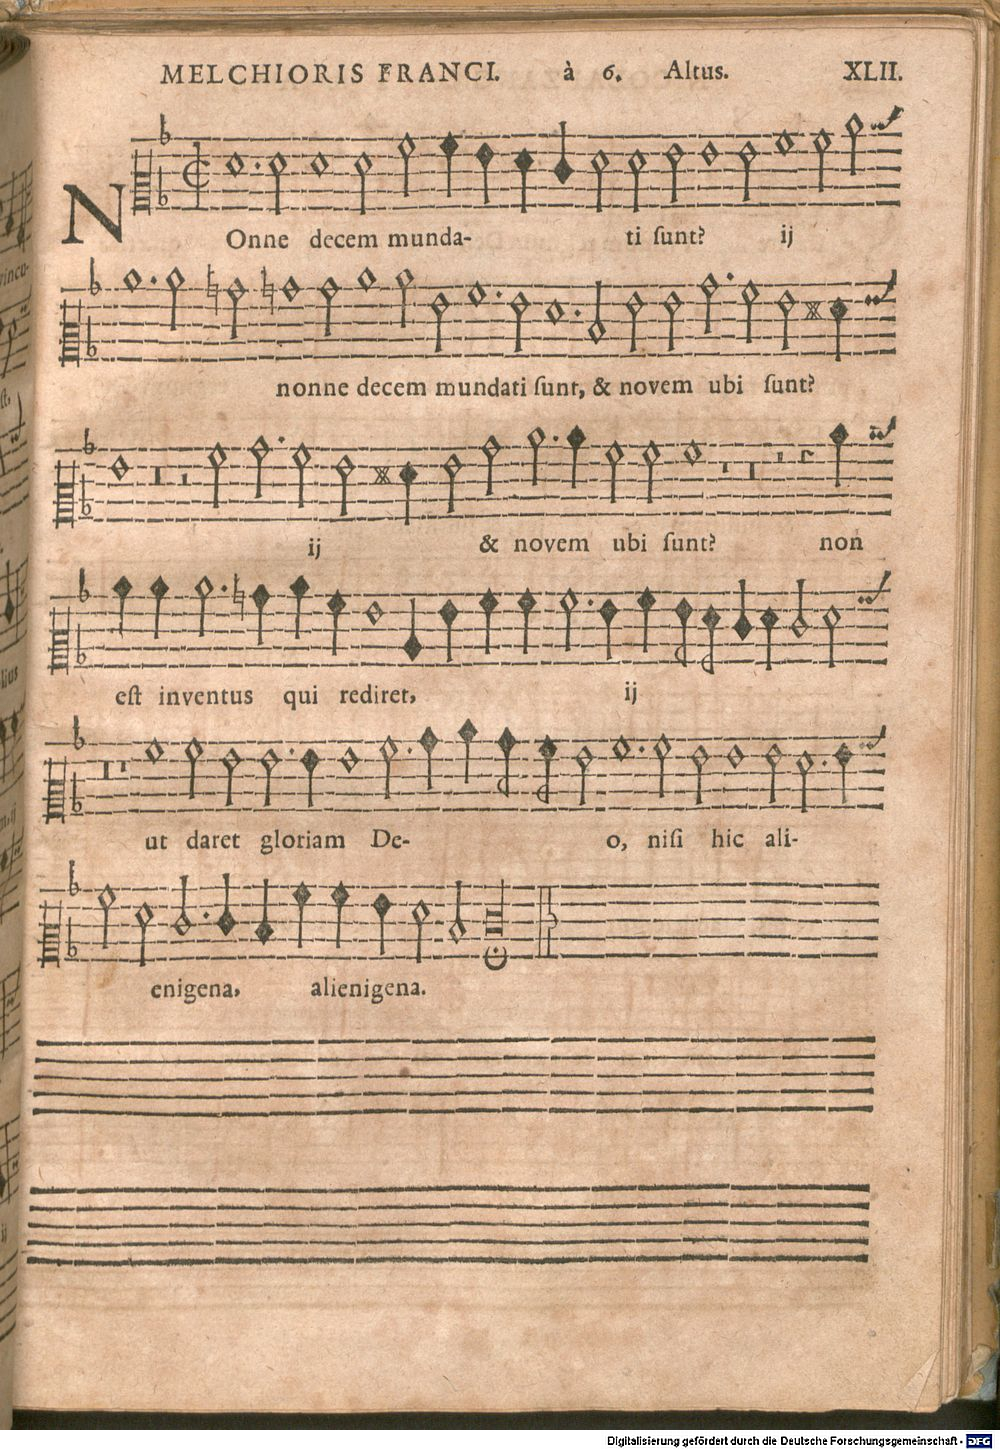 MELCHIORIS FRANCI. à 6. Altus. XLII.
NOnne decem munda- ti sunt? ij
nonne decem mundati sunt, & novem ubi sunt?
ij & novem ubi sunt? non
est inventus qui rediret, ij
ut daret gloriam De- o, nisi hic ali-
enigena, alienigena.
Digitalisierung gefördert durch die Deutsche Forschungsgemeinschaft - DFG